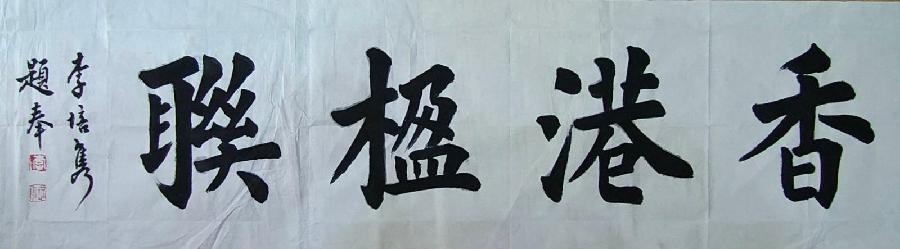 香港楹聯
李培隽
題奉